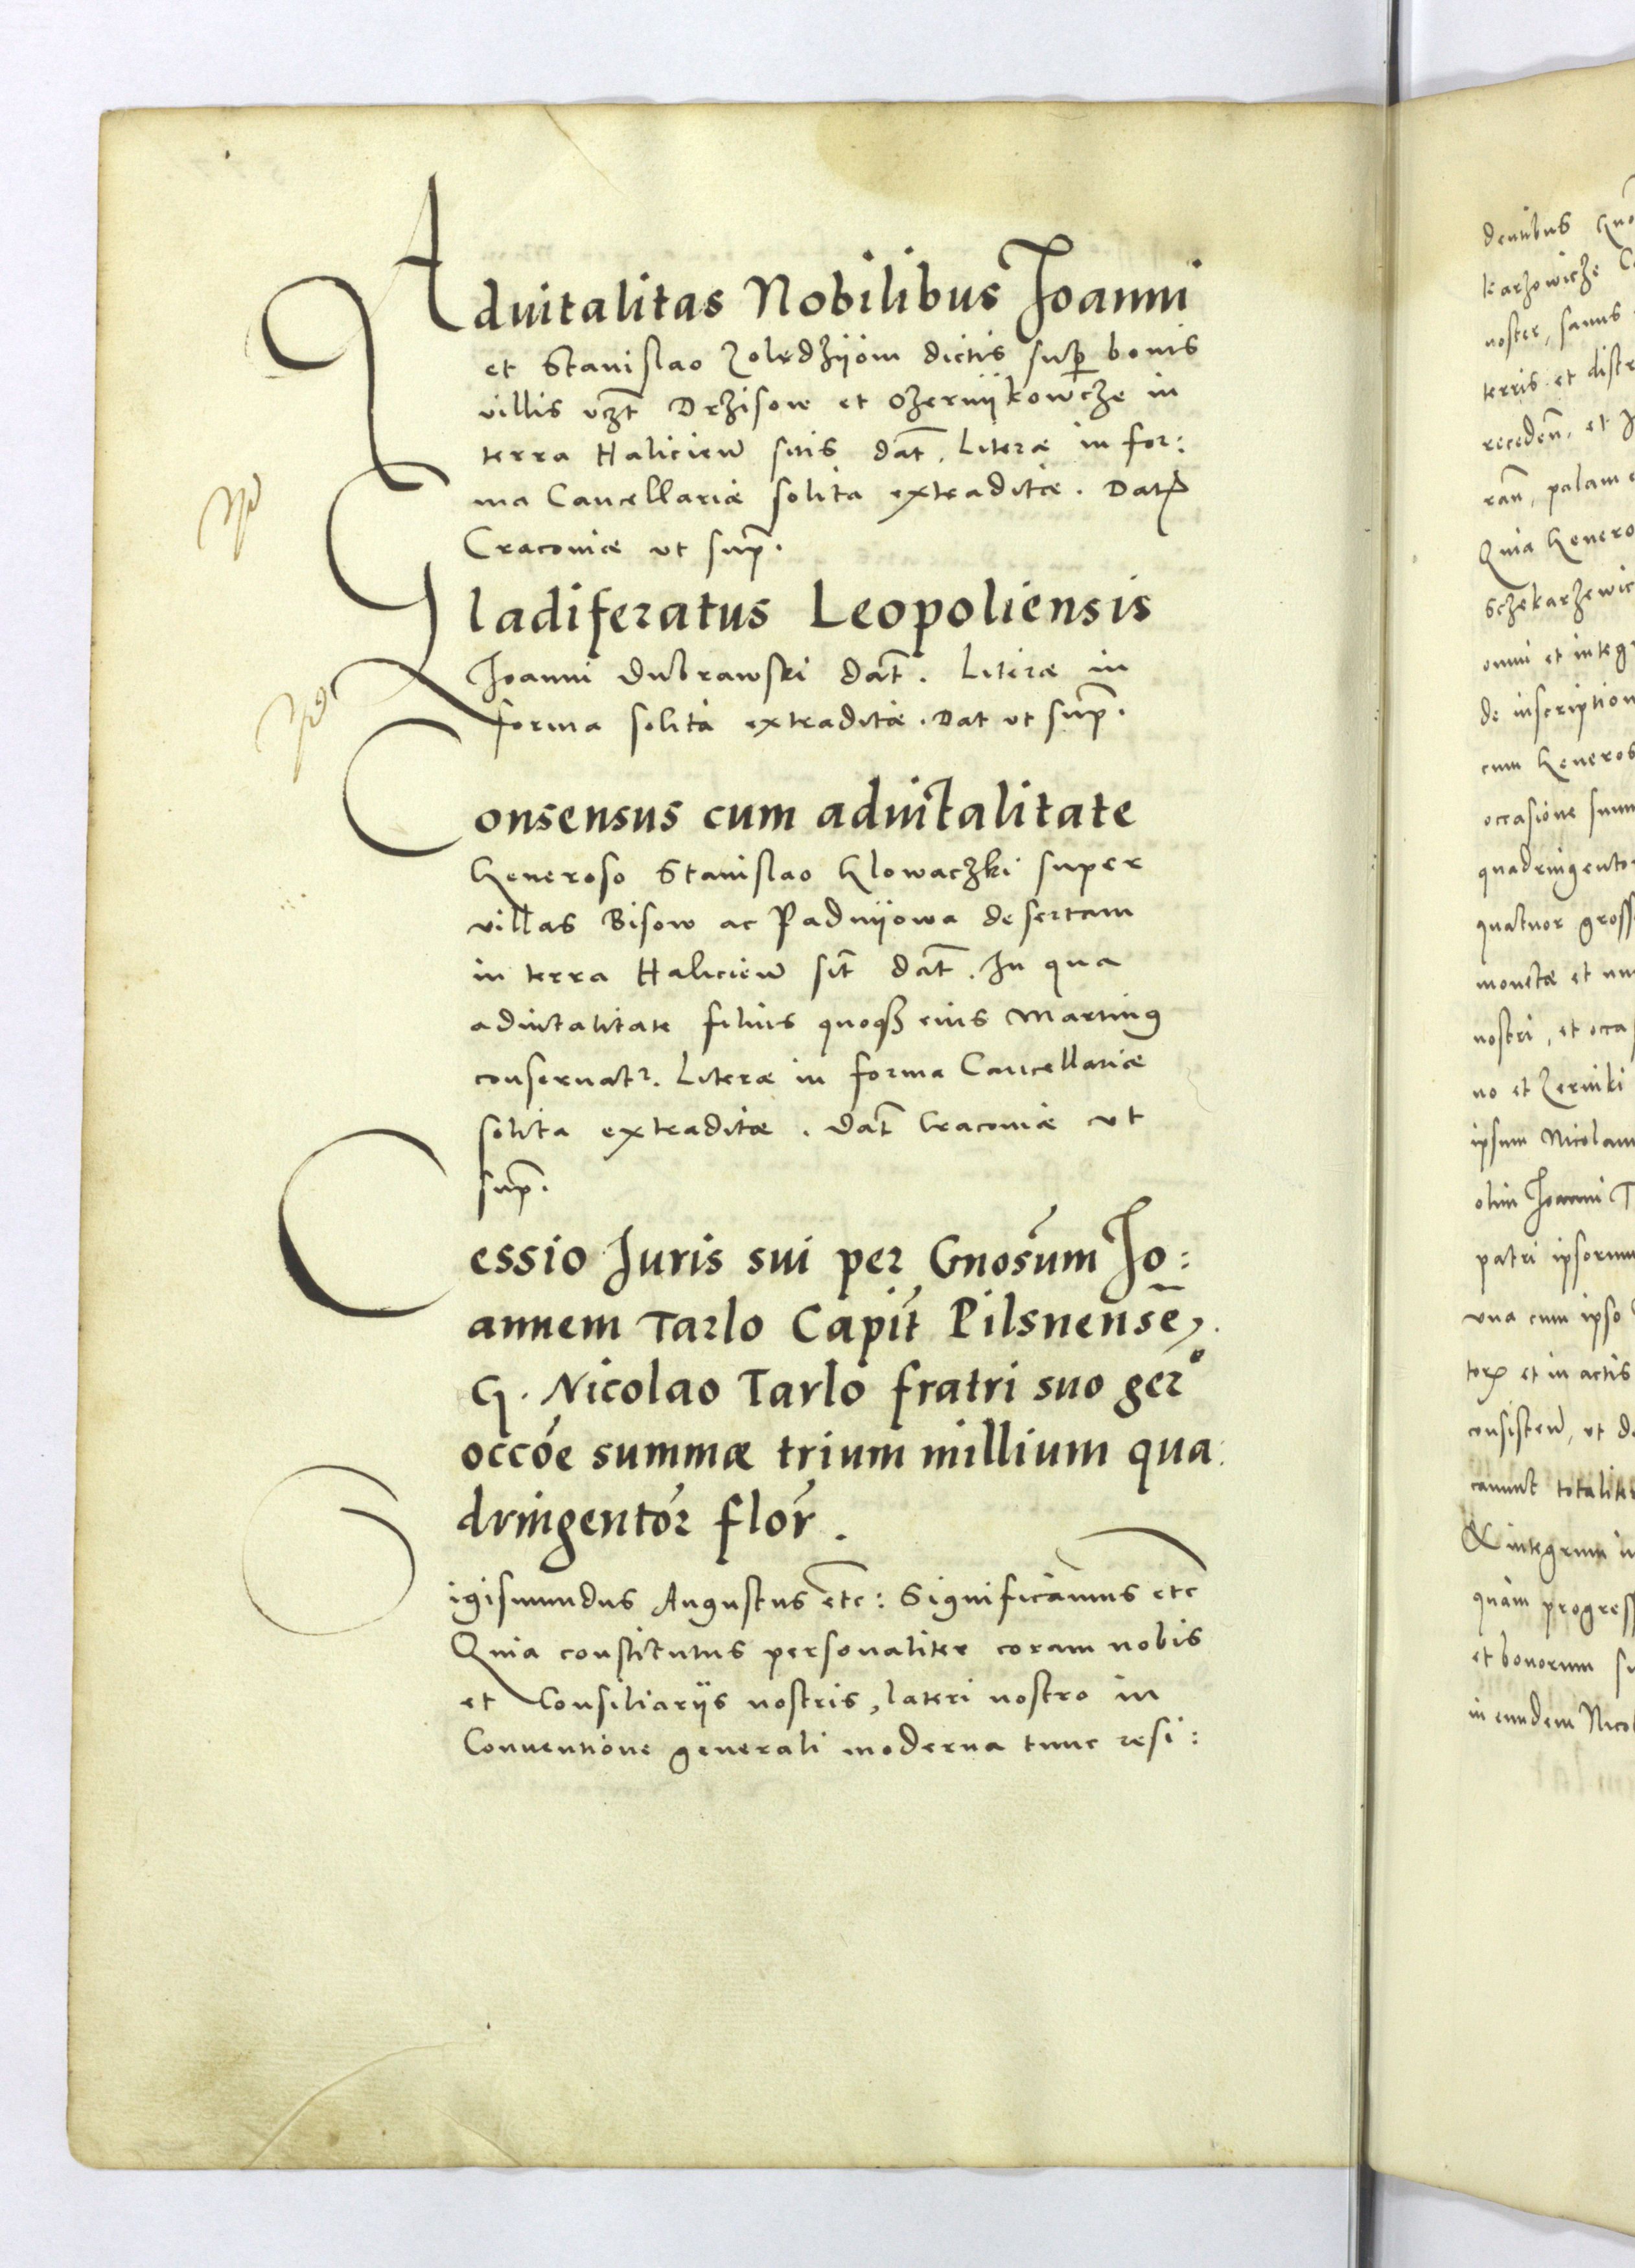 Advitalitas Nobilibus Joanni
et Stanislao Zoledzijom dictis sup bonis
villis vzt Drzisow et Ozernijkowcze in
terra Halicien sitis dat. Literæ in for:
ma Cancellariæ solita extraditæ. Dat
Cracoviæ ut sup.
Gladiferatus Leopoliensis
Joanni Dubrawski dat. Literæ in
forma solita extraditæ. Dat ut sup.
Consensus cum advitalitate
Generoso Stanislao Glowaczki super
villas Bisow ac Padnijowa desertam
in terra Halicien sit dat. In qua
advitalitate filius quoq eius Martinus
conservatr. Literæ in forma Cancellariæ
solita extraditæ. Dat Cracoviæ ut
sup.
Cessio Juris sui per Gnosum Jo:
annem Tarlo Capit Pilsnense,
G. Nicolao Tarlo fratri suo ger
occoe summæ trium millium qua
dringentor flor.
Sigismundus Augustus etc: Significamus etc
Quia constitutus personaliter coram nobis
et Consiliarijs nostris, lateri nostro in
Conventione generali moderna tunc resi:
dentibus
karzowicze
noster, sanus
terris et
receden, et
ran, palam
Quia Genero
Sczekarzewic
omni et integ
de inscription
cum Generos
occasione sum
quadringento
quatuor gross
monetæ et
nostri, et occa
no et Zerniki
ipsum Nicolaum
olim Joanni T
patri ipsorum
una cum ipso
et in actis
consisten, ut
totalite
integrum
quam progress
et bonorum su
in eundem Nicol